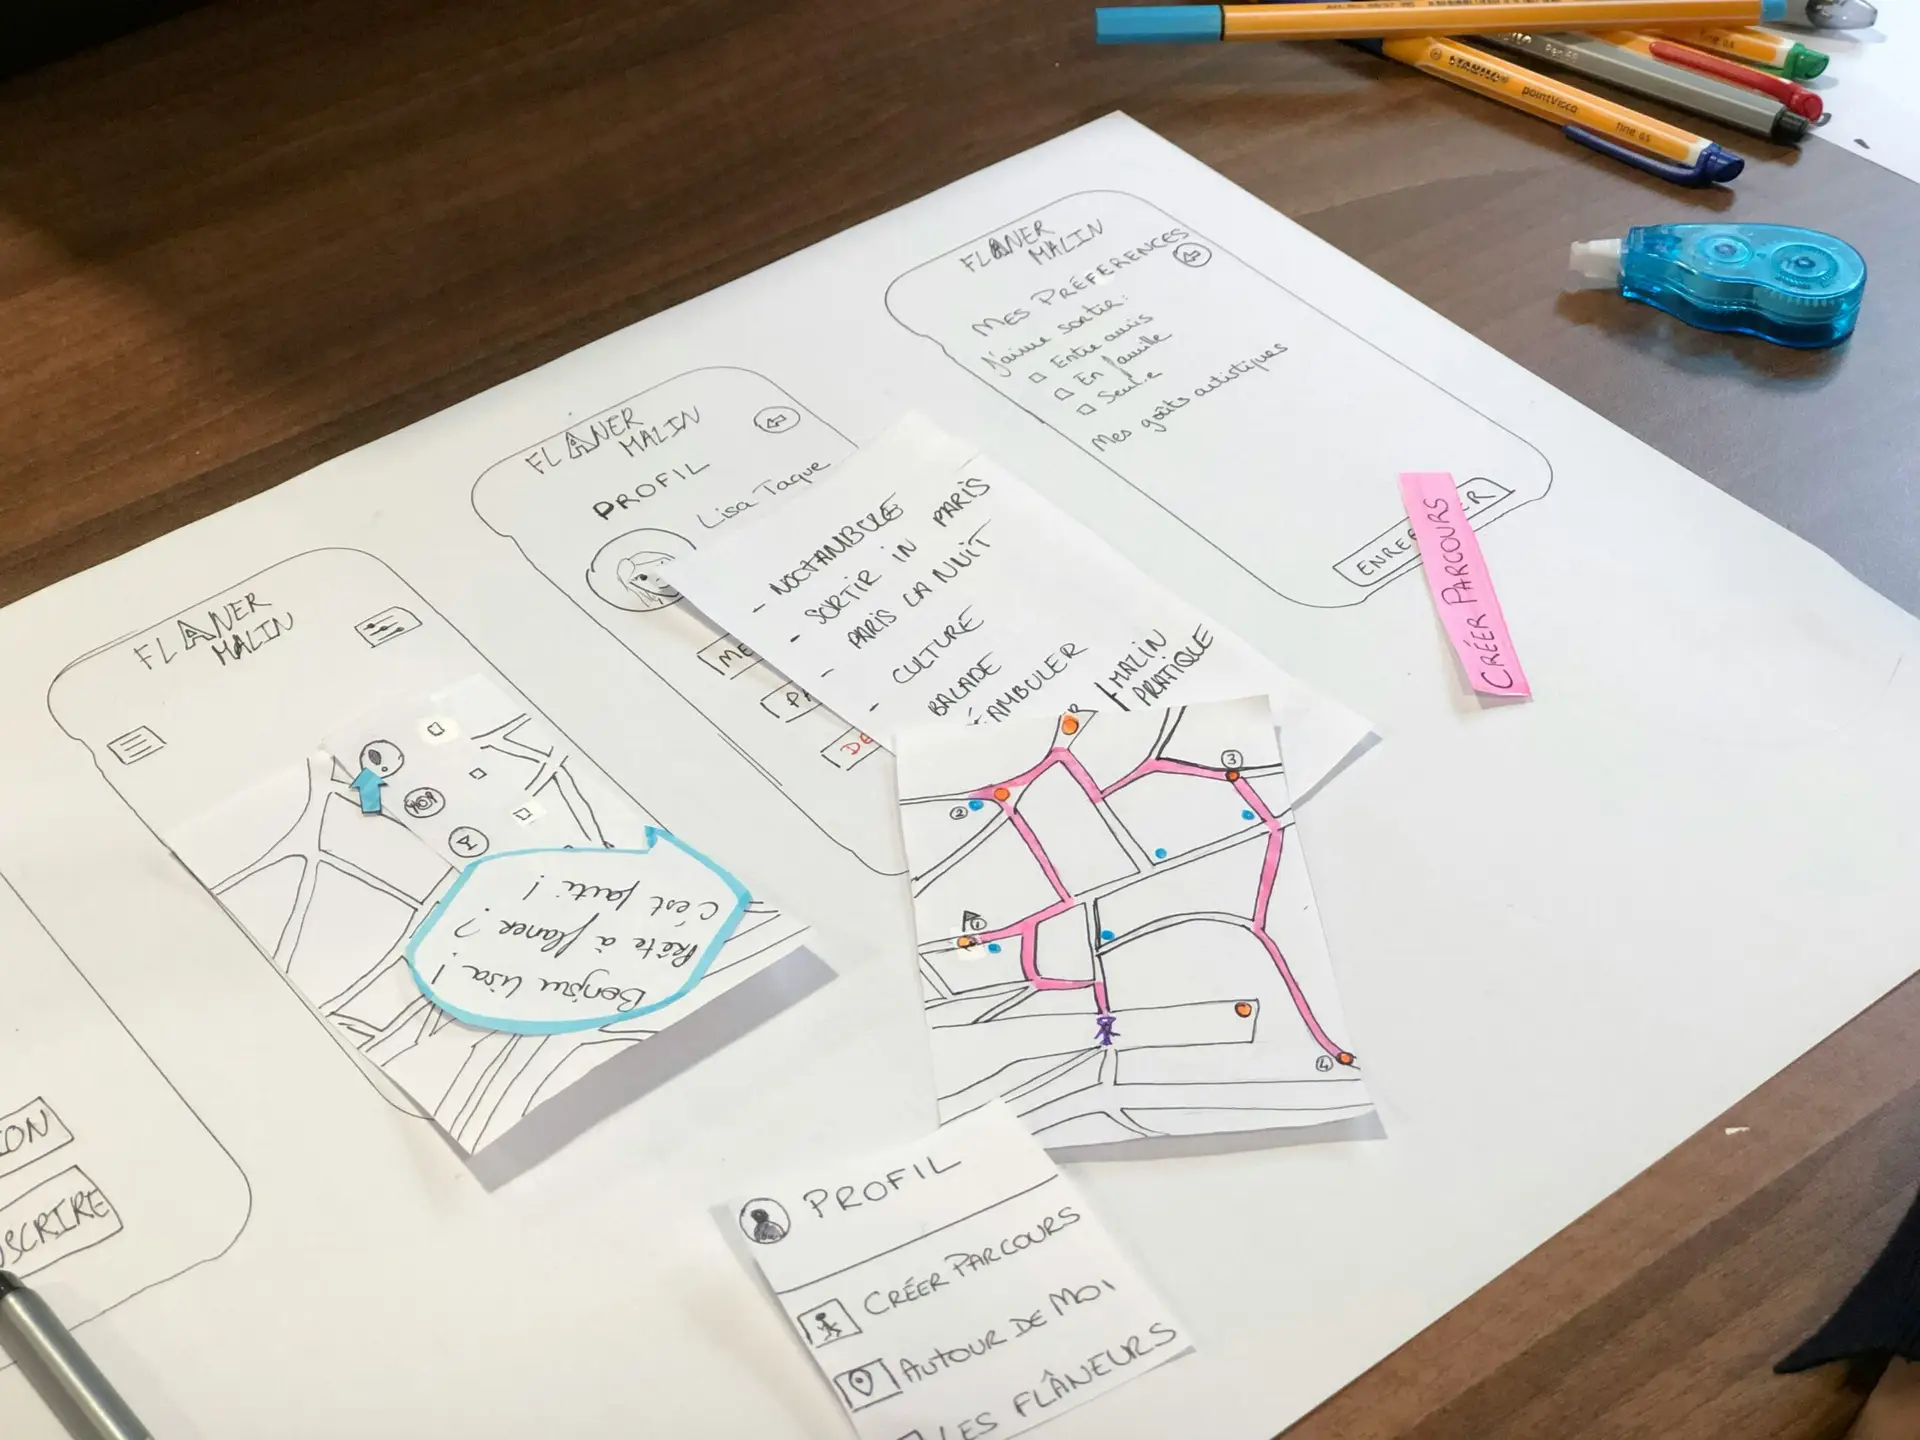 STABILO
pointVisco
fine 0.5
FLÂNER
MALIN
MES PRÉFERENCES
J'aime sortir:
Entre amis
En famille
Seul.e
Mes goûts artistiques
CRÉER PARCOURS
FLÂNER
MALIN
PROFIL
Lisa Taque
ME
PA
DE
- NOCTAMBULE
- SORTIR IN PARIS
- PARIS LA NUIT
- CULTURE
BALADE
ÉAMBULER
MALIN
PRATIQUE
FLÂNER
MALIN
Bonjour Lisa !
Prête à flâner ?
C'est parti !
1
2
3
4
ION
SCRIRE
PROFIL
CRÉER PARCOURS
AUTOUR DE MOI
LES FLÂNEURS